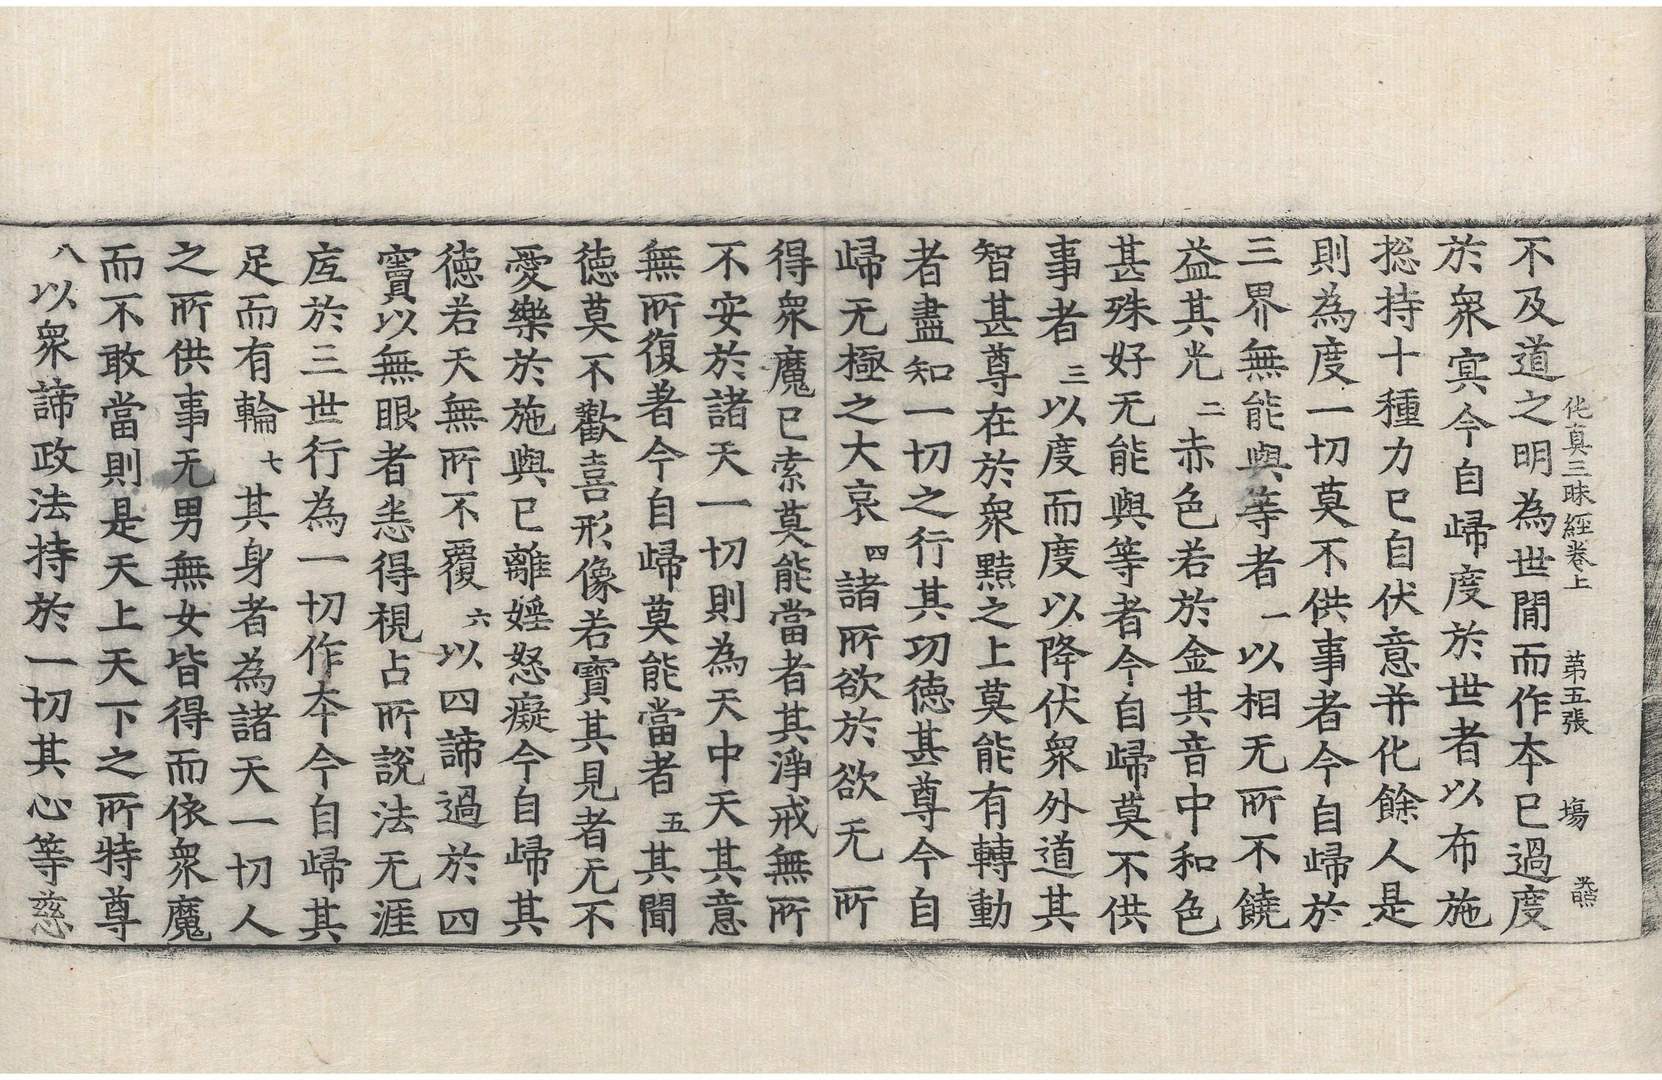 他真三昧經卷上 苐五張 塲
不及道之明為世閒而作夲已過度
於衆㝠今自㱕度於世者以布施
揔持十種力已自伏意幷化餘人是
則為度一切莫不供事者今自㱕於
三界無能與等者一以相无所不饒
益其光二赤色若於金其音中和色
甚殊好无能與等者今自㱕莫不供
事者三以度而度以降伏衆外道其
智甚尊在於衆黠之上莫能有轉動
者盡知一切之行其功徳甚尊今自
㱕无極之大哀四諸所欲於欲无所
得衆魔已索莫能當者其淨戒無所
不安於諸天一切則為天中天其意
無所復者今自㱕莫能當者五其聞
徳莫不歡喜形像若寶其見者无不
愛樂於施與已離婬怒癡今自㱕其
徳若天無所不覆六以四諦過於四
竇以無眼者悉得視占所說法无涯
㡳於三世行為一切作夲今自㱕其
足而有輪七其身者為諸天一切人
之所供事无男無女皆得而依衆魔
而不敢當則是天上天下之所特尊
八以衆諦政法持於一切其心等慈